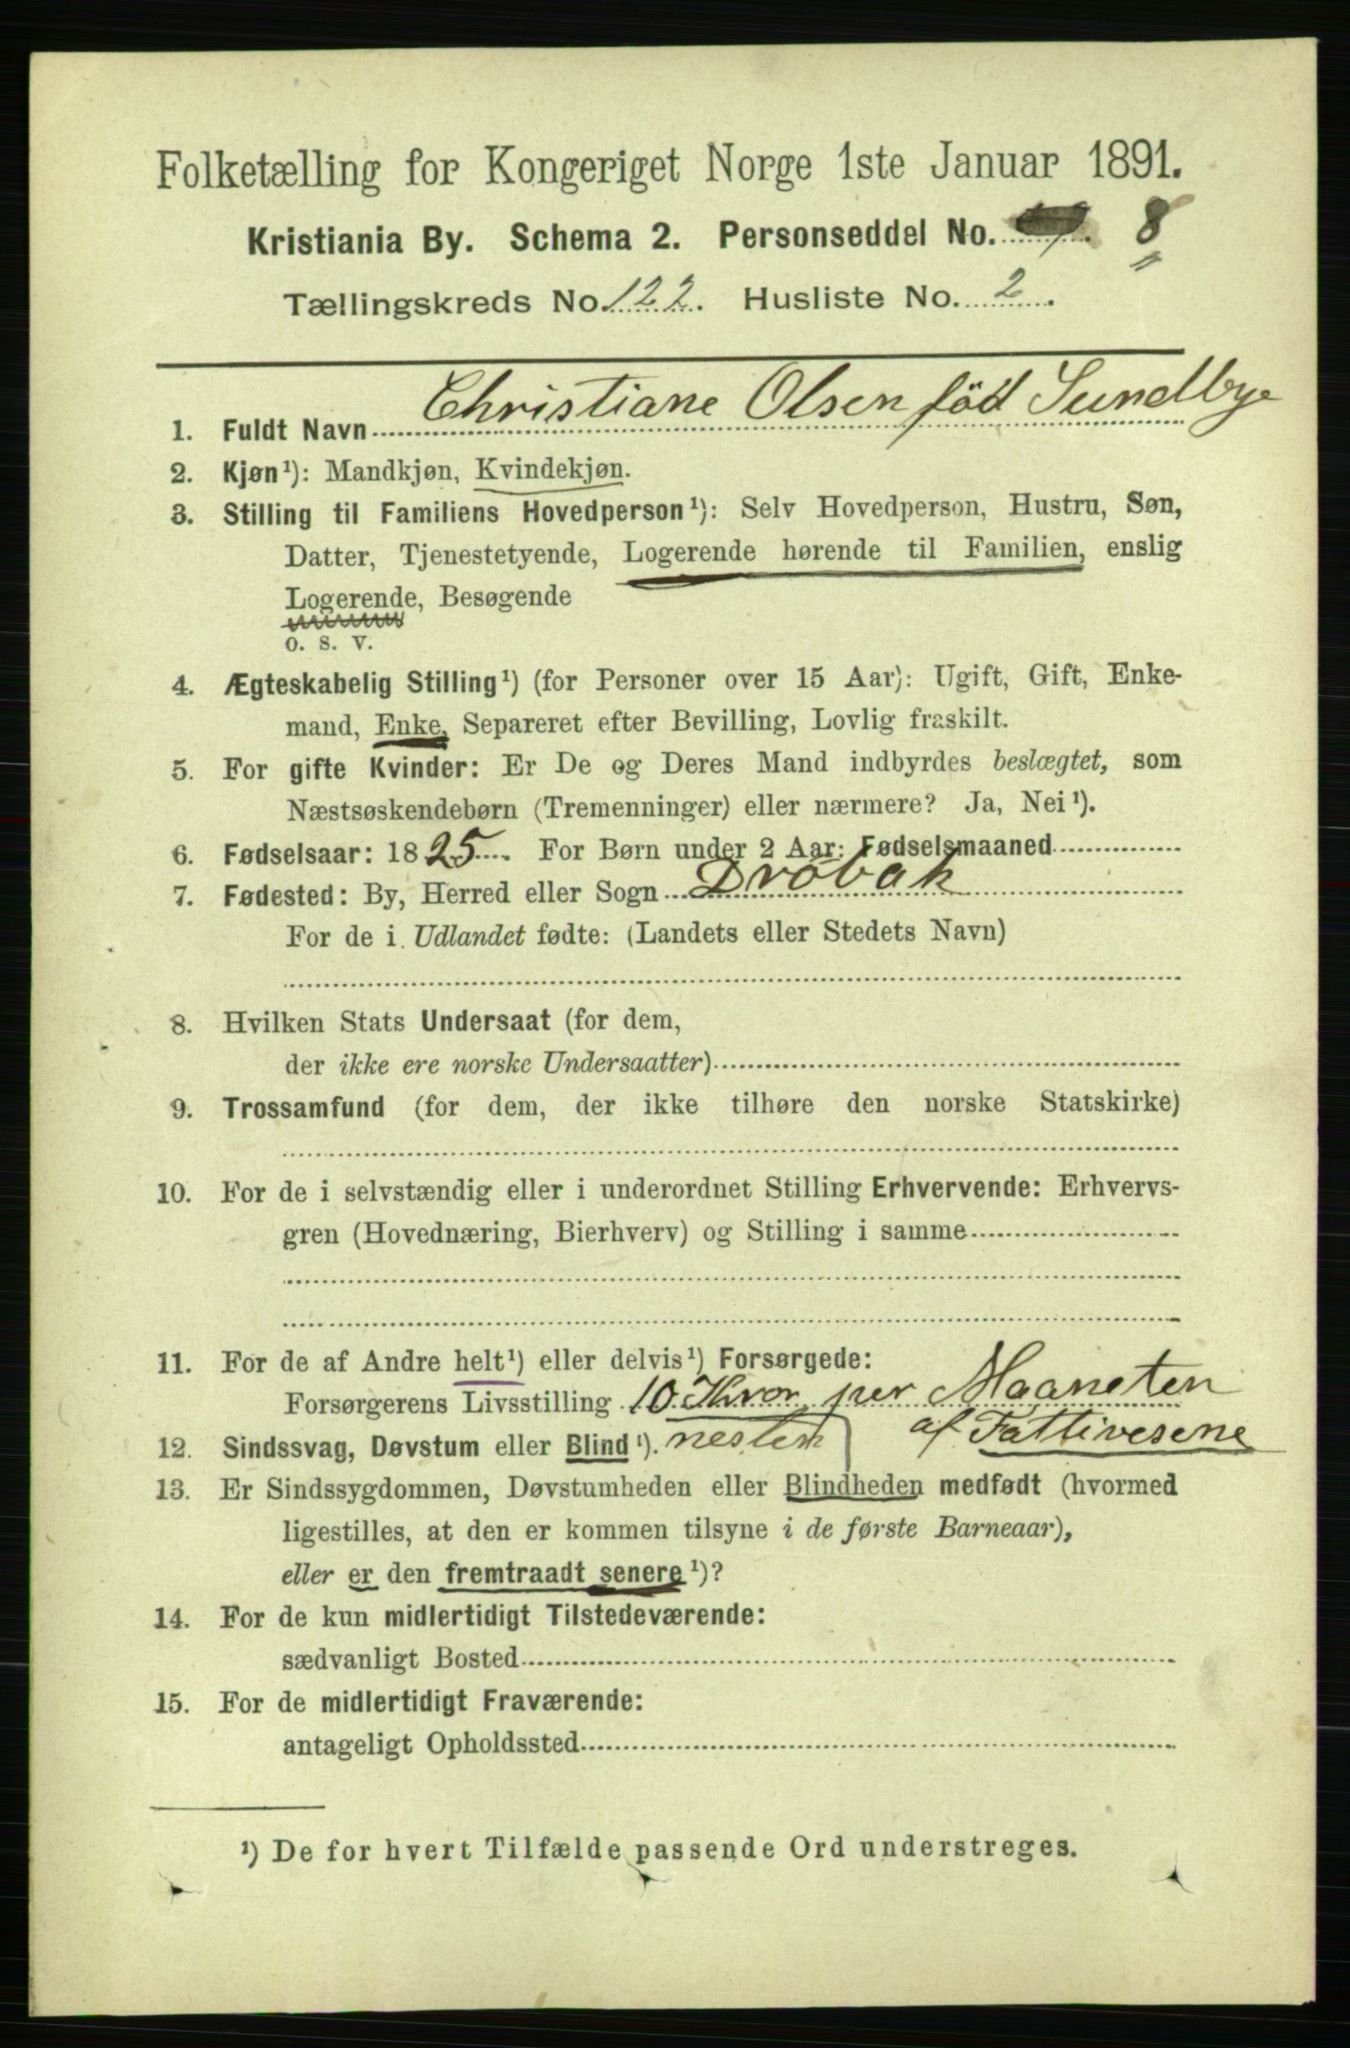 Folketælling for Kongeriget Norge 1ste Januar 1891.
Kristiania By. Schema 2. Personseddel No. 8
Tællingskreds No. 122. Husliste No. 2.
1. Fuldt Navn Christiane Olsen föd Sundbye
2. Kjøn¹): Mandkjøn, Kvindekjøn.
3. Stilling til Familiens Hovedperson¹): Selv Hovedperson, Hustru, Søn,
Datter, Tjenestetyende, Logerende hørende til Familien, enslig
Logerende, Besøgende
o. s. v.
4. Ægteskabelig Stilling¹) (for Personer over 15 Aar): Ugift, Gift, Enke-
mand, Enke, Separeret efter Bevilling, Lovlig fraskilt.
5. For gifte Kvinder: Er De og Deres Mand indbyrdes beslægtet, som
Næstsøskendebørn (Tremenninger) eller nærmere? Ja, Nei¹).
6. Fødselsaar: 1825. For Børn under 2 Aar: Fødselsmaaned
7. Fødested: By, Herred eller Sogn Dröbak
For de i Udlandet fødte: (Landets eller Stedets Navn)
8. Hvilken Stats Undersaat (for dem,
der ikke ere norske Undersaatter)
9. Trossamfund (for dem, der ikke tilhøre den norske Statskirke)
10. For de i selvstændig eller i underordnet Stilling Erhvervende: Erhvervs-
gren (Hovednæring, Bierhverv) og Stilling i samme
11. For de af Andre helt¹) eller delvis¹) Forsørgede:
Forsørgerens Livsstilling 10 Kror per Maaneten
af Fattivesene
12. Sindssvag, Døvstum eller Blind¹). nesten
13. Er Sindssygdommen, Døvstumheden eller Blindheden medfødt (hvormed
ligestilles, at den er kommen tilsyne i de første Barneaar),
eller er den fremtraadt senere¹)?
14. For de kun midlertidigt Tilstedeværende:
sædvanligt Bosted
15. For de midlertidigt Fraværende:
antageligt Opholdssted
¹) De for hvert Tilfælde passende Ord understreges.